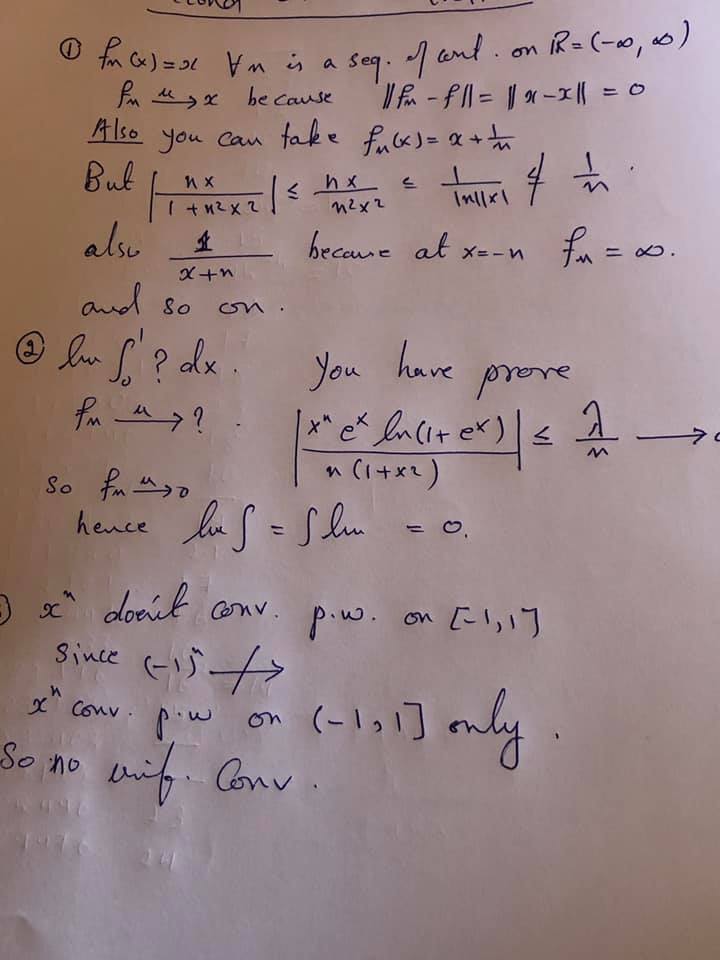 ① fn(x)=x ∀n is a seq. of cont. on ℝ=(-∞,∞)
fn u→ x because ||fn-f||=||x-x||=0
Also you can take fn(x)=x+1/n
But |nx/(1+n²x²)| ≤ nx/n²x² ≤ 1/|n||x| ≰ 1/n.
also 1/(x+n) because at x=-n fn=∞.
and so on.
② lim ∫₀¹ ? dx. you have prove
fn u→ ?. |xⁿ eˣ ln(1+eˣ)/n(1+x²)| ≤ λ/n →
so fn u→ 0
hence lim ∫ = ∫ lim = 0.
xⁿ doesn't conv. p.w. on [-1,1]
Since (-1)ⁿ ↛
xⁿ conv. p.w on (-1,1] only.
So no unif. Conv.